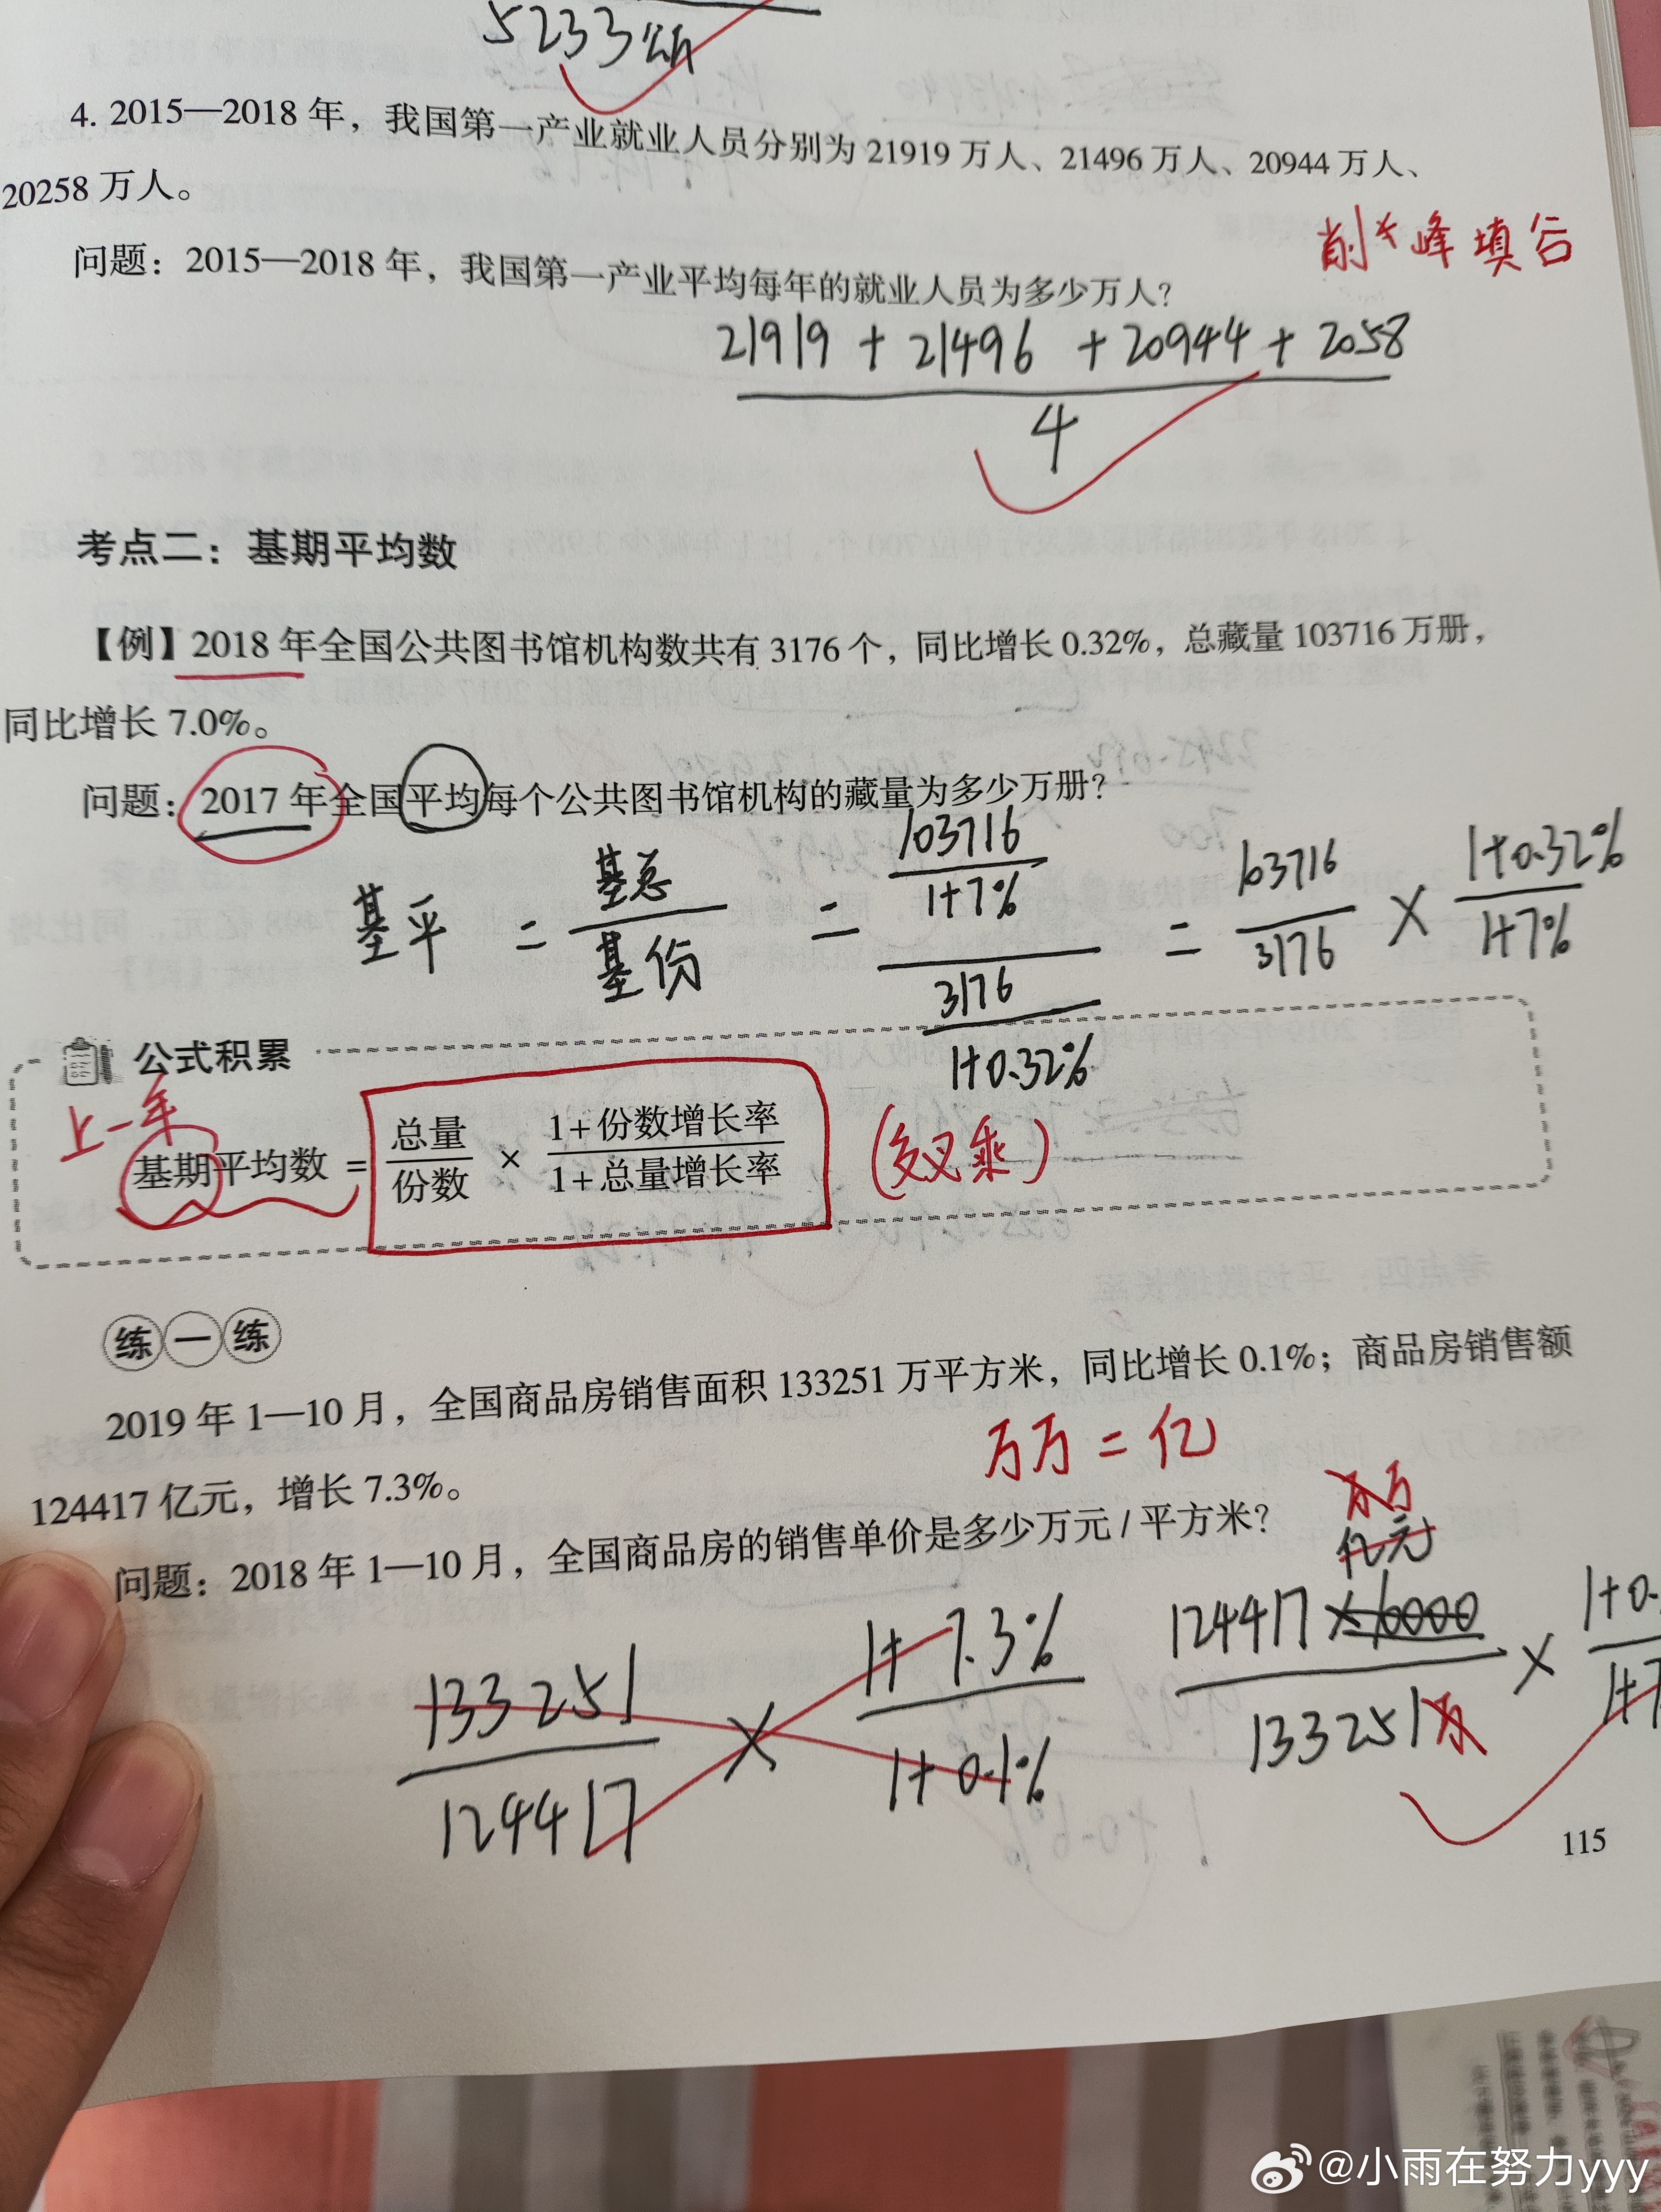 5233
4. 2015—2018 年，我国第一产业就业人员分别为 21919 万人、21496 万人、20944 万人、
20258 万人。
削峰填谷
问题：2015—2018 年，我国第一产业平均每年的就业人员为多少万人？
21919 + 21496 + 20944 + 2058
4
考点二：基期平均数
【例】2018 年全国公共图书馆机构数共有 3176 个，同比增长 0.32%，总藏量 103716 万册，
同比增长 7.0%。
问题：2017 年全国平均每个公共图书馆机构的藏量为多少万册？
基平 = 基总 / 基份 = 103716 / 1+7% / 3176 / 1+0.32% = 103716 / 3176 × 1+0.32% / 1+7%
公式积累
上一年
基期平均数 = 总量 / 份数 × 1+份数增长率 / 1+总量增长率
(交叉乘)
练一练
2019 年 1—10 月，全国商品房销售面积 133251 万平方米，同比增长 0.1%；商品房销售额
万万 = 亿
124417 亿元，增长 7.3%。
万万
亿元
问题：2018 年 1—10 月，全国商品房的销售单价是多少万元 / 平方米？
133251 / 124417 × 1+7.3% / 1+0.1%
124417 ×10000 / 133251万 × 1+0. / 1+7
115
@小雨在努力yyy